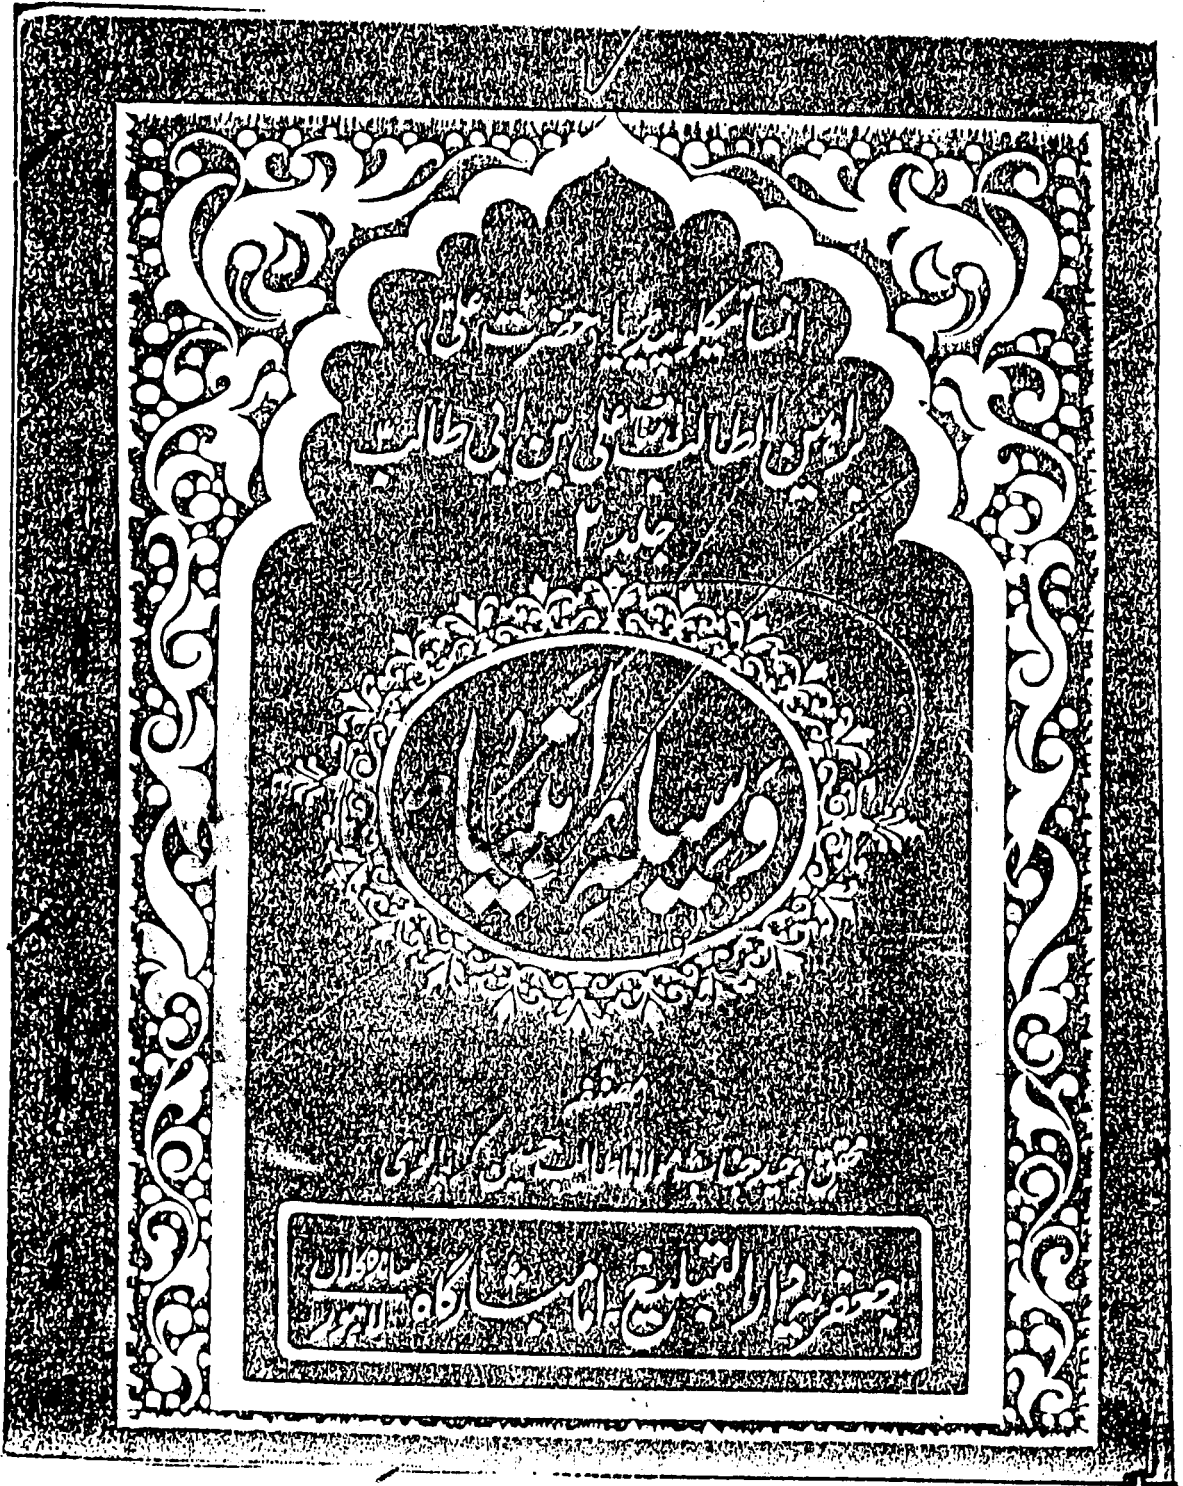 انسائیکلوپیڈیا حضرت علیؑ
براہین المطالب علی بن ابی طالب
جلد ۲
وسیلہ انبیاء
مصنفہ
محقق وحید جناب مولانا طالب حسین کرپالوی
جعفریہ دارالتبلیغ۔ امام بارگاہ ساندہ کلاں لاہور